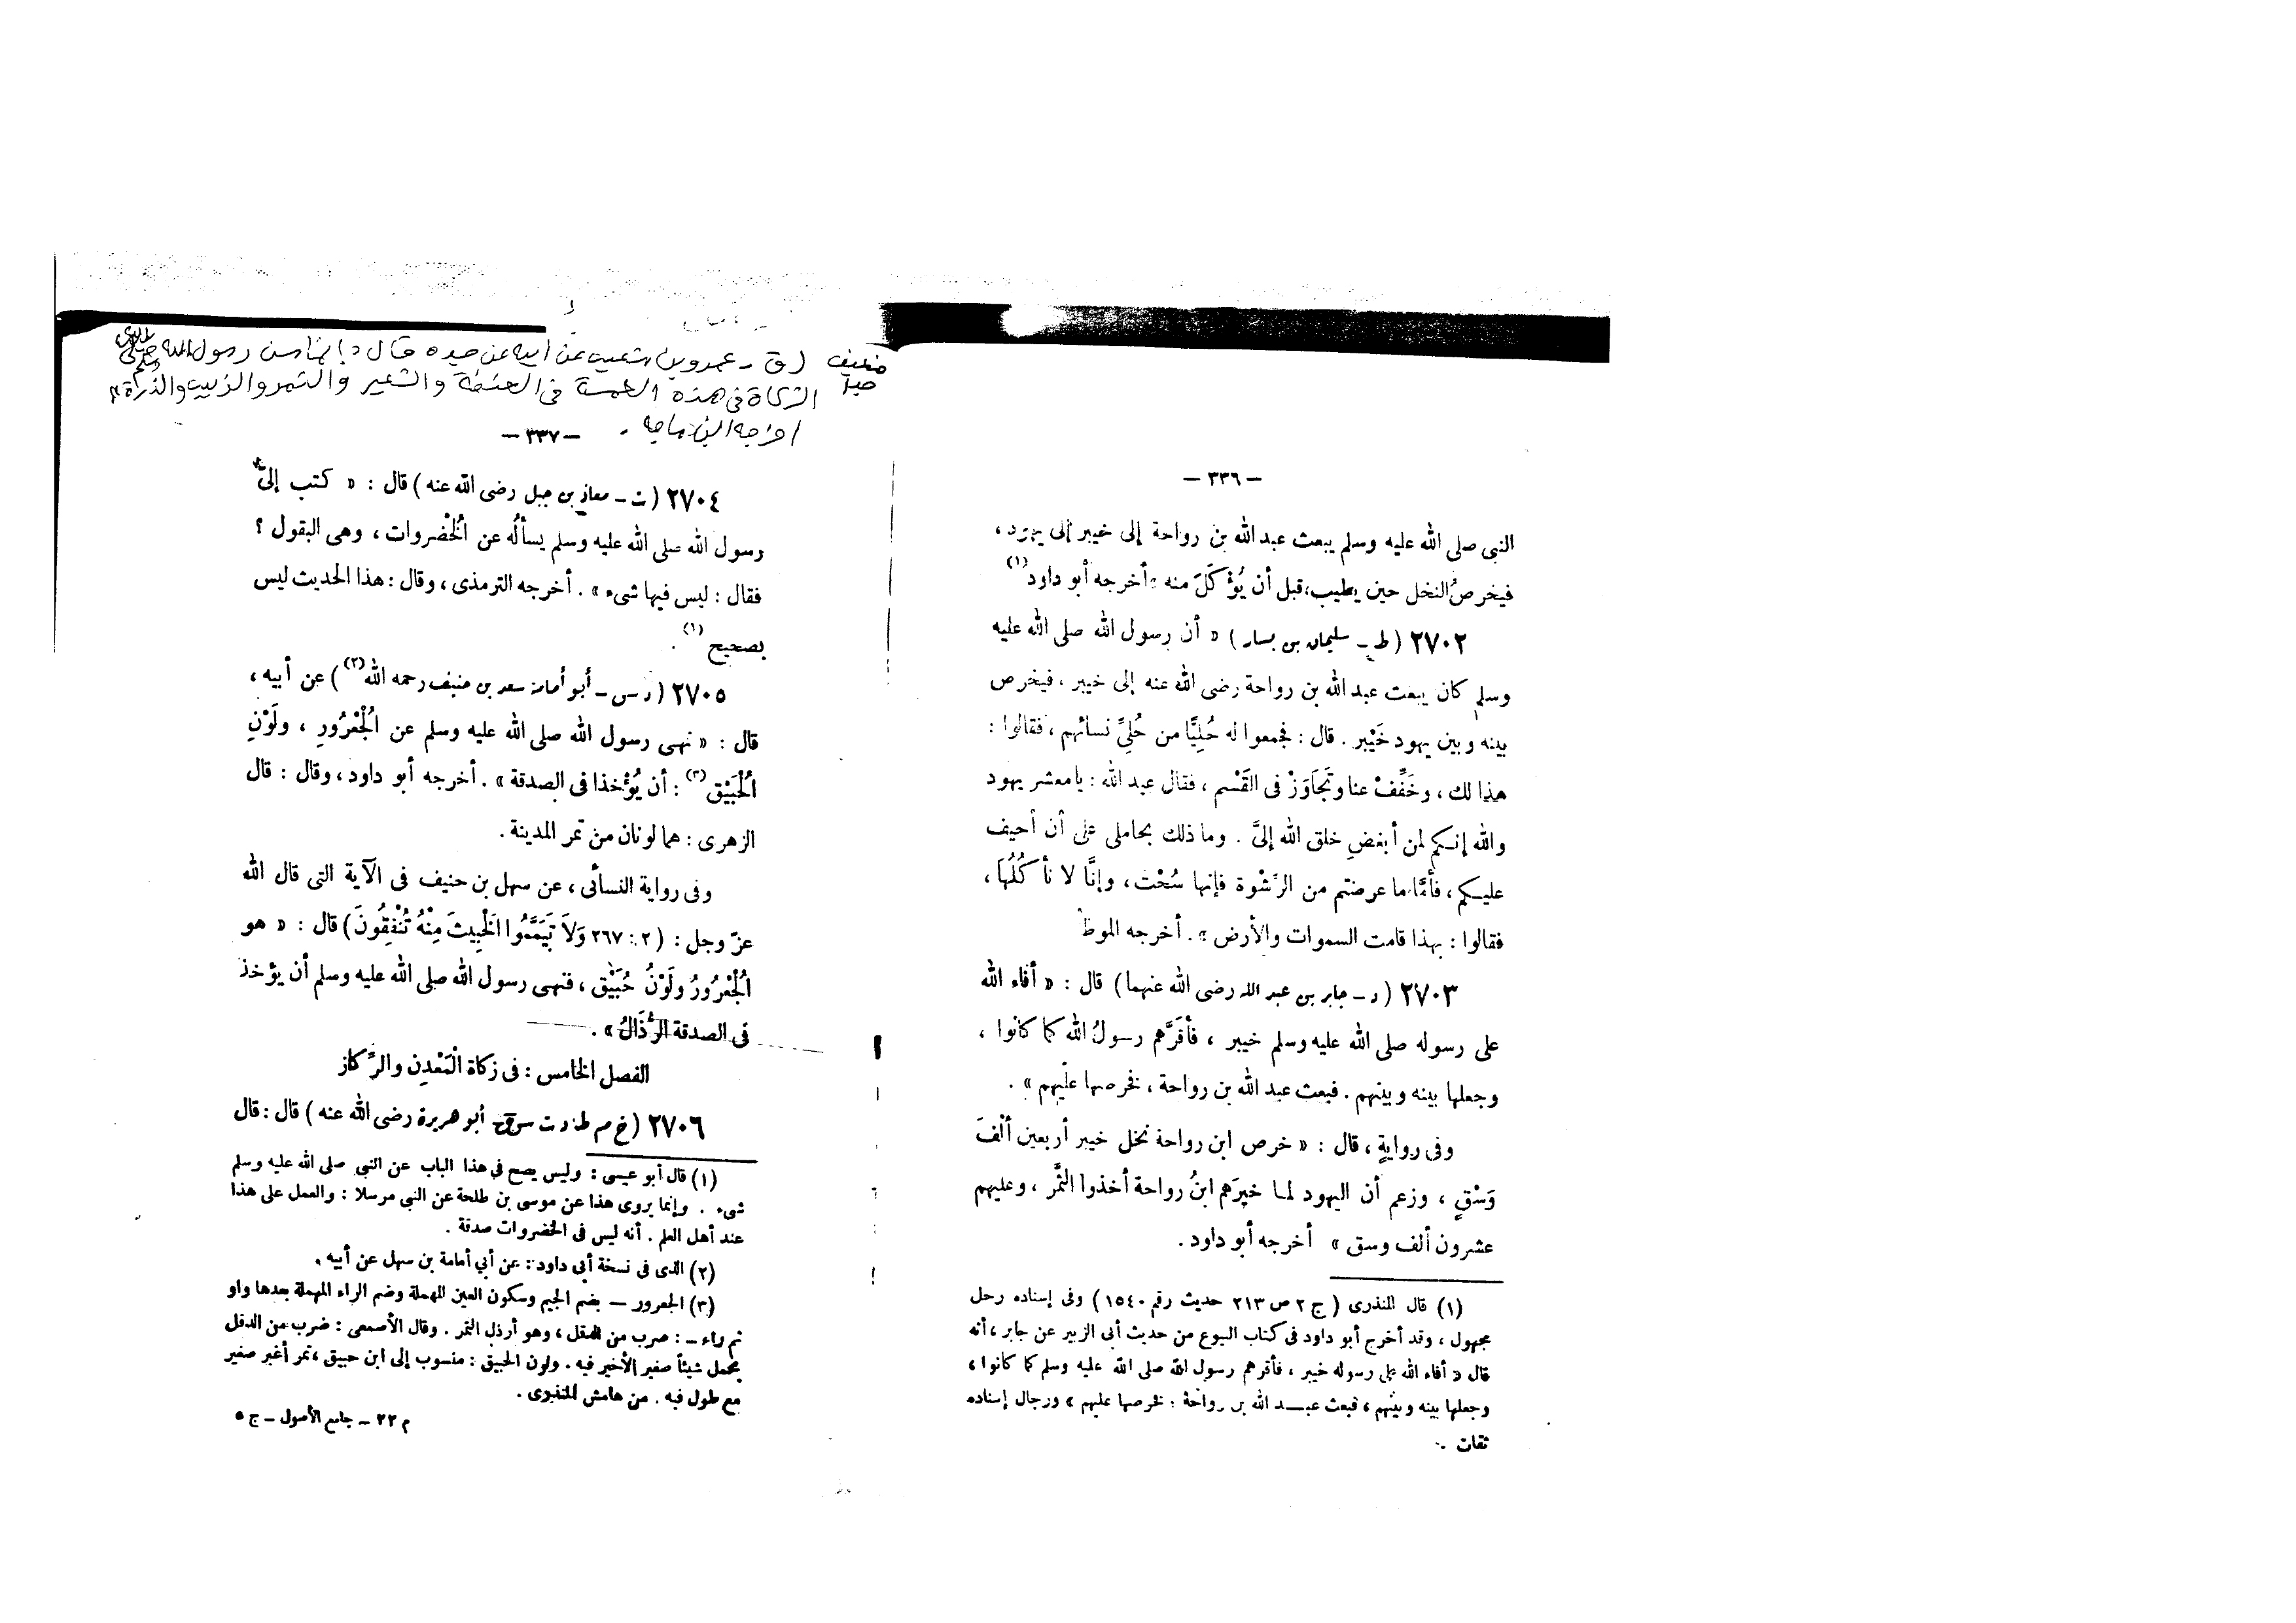 — ٣٣٦ —
النبى صلى الله عليه وسلم يبعث عبد الله بن رواحة إلى خيبر إلى يهود ،
فيخرصُ النخل حين يطيب، قبل أن يُؤْكَلَ منه » أخرجه أبو داود (١)
٢٧٠٢ ( ط ـ سليمان بن يسار ) « أن رسول الله صلى الله عليه
وسلم كان يبعث عبد الله بن رواحة رضى الله عنه إلى خيبر ، فيخرص
بينه وبين يهود خَيْبر . قال : فجمعوا له حُلِيًّا من حُلِيِّ نسائهم ، فقالوا :
هذا لك ، وخَفِّفْ عنا وتَجَاوَزْ فى القَسْم ، فقال عبد الله : يا معشر يهود
والله إنـكم لمن أبغضِ خلق الله إلىَّ . وما ذلك بحاملى على أن أحيف
عليـكم ، فأمَّا ما عرضتم من الرِّشْوة فإنها سُحْت ، وإنَّا لا نأكُلُهَا ،
فقالوا : بهذا قامت السموات والأرض » . أخرجه الموطأ
٢٧٠٣ ( د ـ جابر بن عبد الله رضى الله عنهما ) قال : « أفاء الله
على رسوله صلى الله عليه وسلم خيبر ، فأقَرَّهم رسولُ الله كما كانوا ،
وجعلها بينه وبينهم . فبعث عبد الله بن رواحة ، فخرصها عليهم » .
وفى روايةٍ ، قال : « خرص ابن رواحة نخل خيبر أربعين ألْفَ
وَسْقٍ ، وزعم أن اليهود لمـا خيرَهم ابنُ رواحة أخذوا الثَّمر ، وعليهم
عشرون ألف وسق » أخرجه أبو داود .
(١) قال المنذرى ( ج ٢ ص ٢١٣ حديث رقم ١٥٤٠ ) وفى إسناده رجل
مجهول ، وقد أخرج أبو داود فى كتاب البيوع من حديث أبى الزبير عن جابر ، أنه
قال « أفاء الله على رسوله خيبر ، فأقرهم رسول الله صلى الله عليه وسلم كما كانوا ،
وجعلها بينه وبينهم ، فبعث عبـد الله بن رواحة : فخرصها عليهم » ورجال إسناده
ثقات .
ضعيف جدا
( ق ـ عمرو بن شعيب عن أبيه عن جده قال « إنما سن رسول الله صلى الله عليه وسلم
الزكاة فى هذه الخمسة فى الحنطة والشعير والتمر والزبيب والذرة »
اخرجه ابن ماجه .
— ٣٣٧ —
٢٧٠٤ ( ت ـ معاذ بن جبل رضى الله عنه ) قال : « كتب إلىَّ
رسول الله صلى الله عليه وسلم يسألُه عن الْخُضْروات ، وهى البقول ؟
فقال : ليس فيها شىء » . أخرجه الترمذى ، وقال : هذا الحديث ليس
بصحيح (١) .
٢٧٠٥ ( د س ـ أبو أمامة سعد بن حنيف رحمه الله (٢) ) عن أبيه ،
قال : « نهى رسول الله صلى الله عليه وسلم عن الْجُعْرُورِ ، ولَوْنِ
الْحُبَيْق (٣) : أن يُؤْخذا فى الصدقة » . أخرجه أبو داود ، وقال : قال
الزهرى : هما لونان من تمر المدينة .
وفى رواية النسأئى ، عن سهل بن حنيف فى الآية التى قال الله
عزّ وجل : ( ٢ : ٢٦٧ وَلاَ تَيَمَّمُوا الْخَبِيثَ مِنْهُ تُنْفِقُونَ ) قال : « هو
الْجُعْرُورُ ولَوْنُ حُبَيْق ، فنهى رسول الله صلى الله عليه وسلم أن يؤخذ
فى الصدقة الرُّذَالُ » .
الفصل الخامس : فى زكاة الْمَعْدِن والرِّكاز
٢٧٠٦ ( خ م ط د ت س ق ـ أبو هريرة رضى الله عنه ) قال : قال
(١) قال أبو عيسى : وليس يصح فى هذا الباب عن النبى صلى الله عليه وسلم
شىء . وإنما يروى هذا عن موسى بن طلحة عن النبى مرسلا : والعمل على هذا
عند أهل العلم . أنه ليس فى الخضروات صدقة .
(٢) الذى فى نسخة أبى داود : عن أبي أمامة بن سهل عن أبيه .
(٣) الجعرور — بضم الجيم وسكون العين المهملة وضم الراء المهملة بعدها واو
ثم راء ـ : ضرب من الدقل ، وهو أرذل التمر . وقال الأصمعى : ضرب من الدقل
يحمل شيئاً صغير الأخير فيه . ولون الحبيق : منسوب إلى ابن حبيق ، تمر أغبر صغير
مع طول فيه . من هامش المنذرى .
م ٢٢ ـ جامع الأصول ـ ج ٥